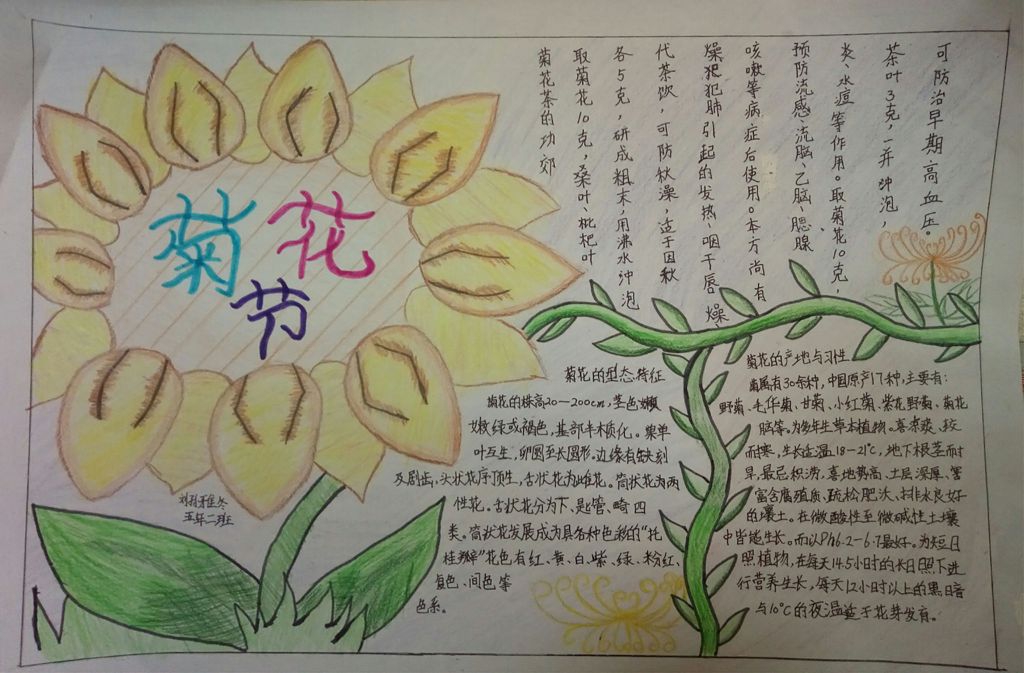 菊花节
菊花茶的功郊
取菊花10克，桑叶、枇杷叶
各5克，研成粗末，用沸水冲泡
代茶饮，可防秋澡，适于因秋
燥犯犯肺引起的发热、咽干唇燥、
咳嗽等病症后使用。本方尚有
预防流感、流脑、乙脑、腮腺
炎、水痘等作用。取菊花10克，
茶叶3克，一并冲泡，
可防治早期高血压。
菊花的型态特征
菊花的株高20—200cm，茎色嫩
嫩绿或褐色，基部半木质化。单
叶互生，卵圆至长圆形，边缘有缺刻
及剧齿，头状花序顶生，舌状花为雌花。筒状花为两
性花。舌状花分为下、匙、管、畸四
类。筒状花发展成为具各种色彩的“花
桂瓣”花色有红、黄、白、紫、绿、粉红、
复色、间色等
色系。
菊花的产地与习性
菊属有30余种，中国原产17种，主要有：
野菊、毛华菊、甘菊、小红菊、紫花野菊、菊花
脑等。为多年生草本植物。喜凉爽、较
耐寒，生长适温18-21℃，地下根茎耐
旱，最忌积涝，喜地势高、土层深厚、
富含腐殖质、疏松肥沃、排水良好
的壤土。在微酸性至微碱性土壤
中皆能生长。而以Ph6.2-6.7最好。为短日
照植物，在每天14.5小时的长日照下进
行营养生长，每天12小时以上的黑暗
与10℃的夜温适于花芽发育。
五年二班